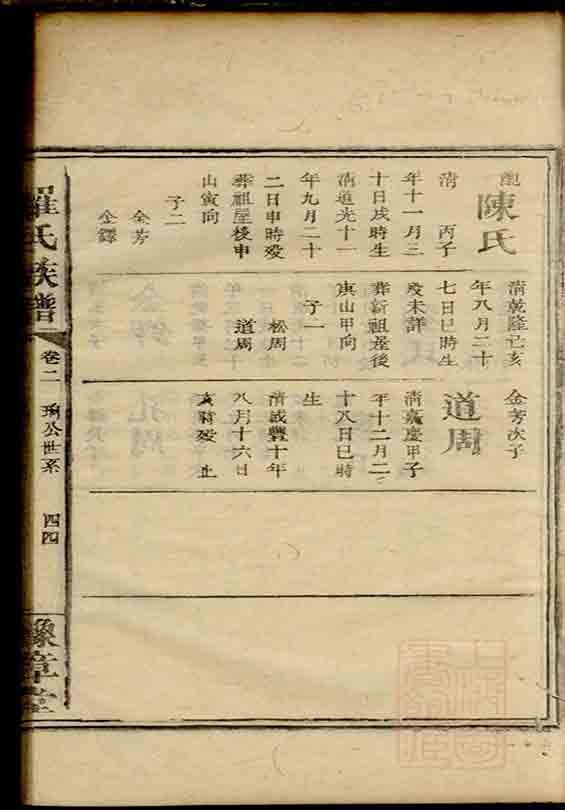 配陳氏
清 丙子
年十一月三
十日戌時生
清道光十一
年九月二十
二日申時殁
葬祖屋後申
山寅向
子二
金芳
金鐸
清乾隆己亥
年八月二十
七日巳時生
殁未詳
葬新祖屋後
庚山甲向
子一
松周
道周
金芳次子
道周
清嘉慶甲子
年十二月二
十八日巳時
生
清咸豐十年
八月十六日
亥時殁 止
羅氏族譜
卷二 珦公世系 四四
豫章堂